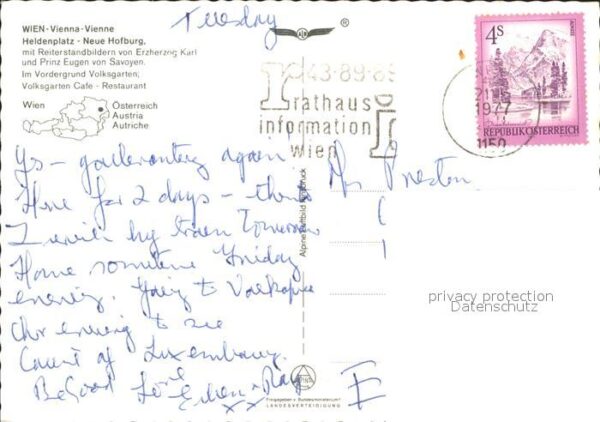 Tuesday
WIEN-Vienna-Vienne
Heldenplatz - Neue Hofburg,
mit Reiterstandbildern von Erzherzog Karl
und Prinz Eugen von Savoyen.
Im Vordergrund Volksgarten;
Volksgarten Cafe - Restaurant
Wien
Österreich
Austria
Autriche
43-89-89
rathaus
information
wien
4S
1977
1150
REPUBLIK ÖSTERREICH
Yes - again
Here for 2 days - then
Zurich by train tomorrow
Home sometime Friday
evening. Going to Volksoper
this evening to see
Count of Luxembourg.
Be Good Love Eileen + Ray
xx
Preston
Alpine Luftbild Innsbruck
privacy protection
Datenschutz
Freigegeben v. Bundesministerium f.
LANDESVERTEIDIGUNG